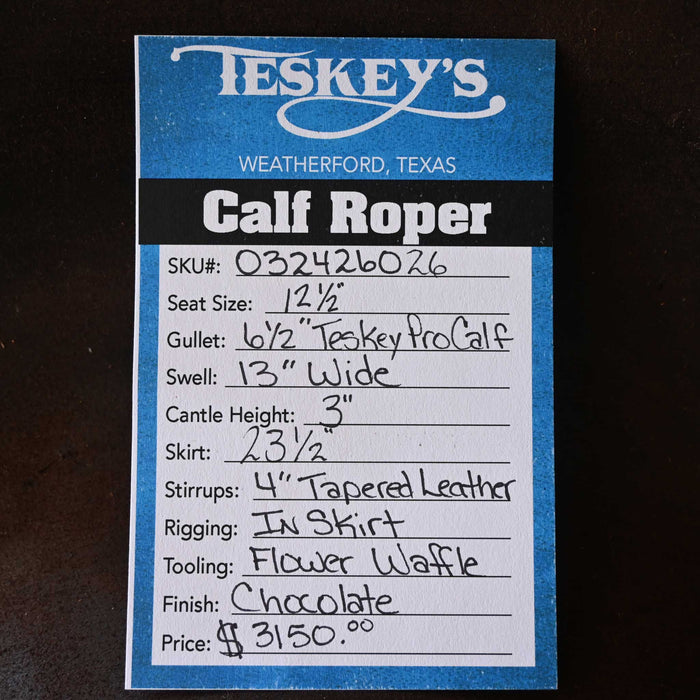 TESKEY'S
WEATHERFORD, TEXAS
Calf Roper
SKU#: 032426026
Seat Size: 12 1/2"
Gullet: 6 1/2" Teskey Pro Calf
Swell: 13" Wide
Cantle Height: 3"
Skirt: 23 1/2"
Stirrups: 4" Tapered Leather
Rigging: In Skirt
Tooling: Flower Waffle
Finish: Chocolate
Price: $3150.00